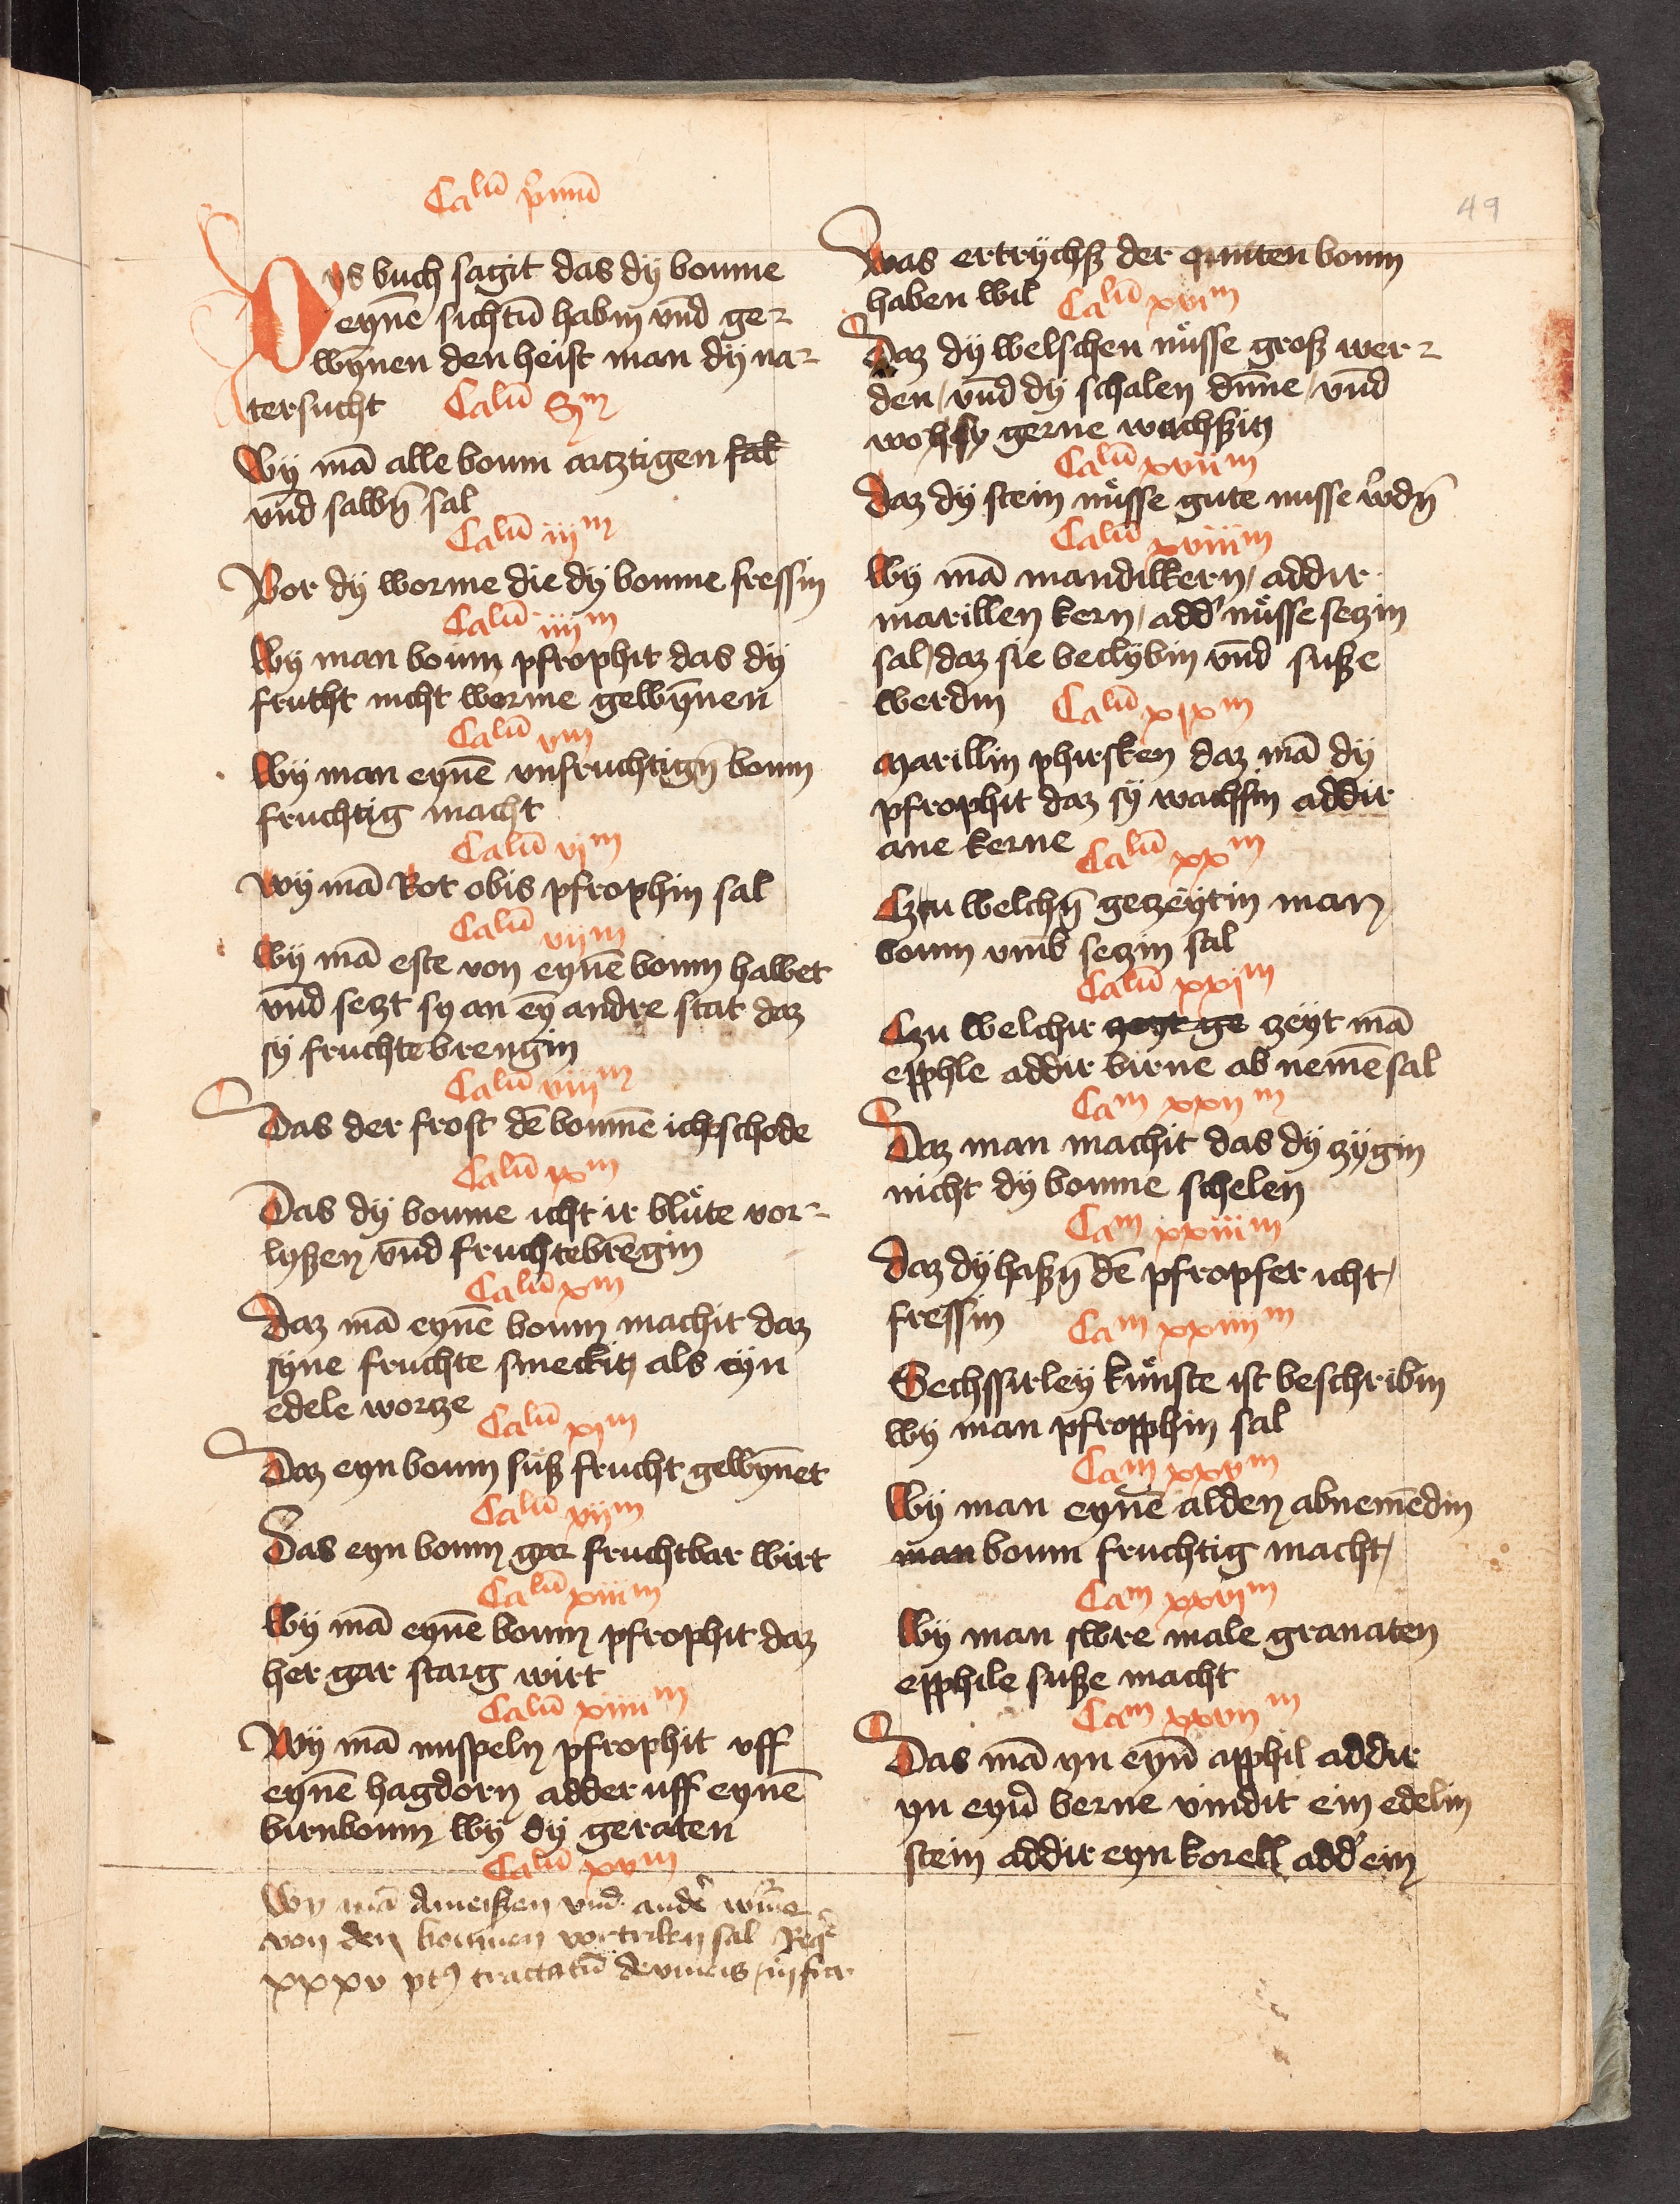 Calū p̄mū
Dys buch sagit das dÿ boume
eynē sichtū habin vn̄d ge-
wȳnen den heist man dÿ na-
tersucht Calū Sm
Wÿ mā alle boum artztigen sal
vn̄d salbn̄ sal
Calū iijm
Vor dÿ worme die dÿ boume fressin
Calū iiijm
Wÿ man boum pfrophit das dÿ
frutht nicht worme gewȳnen
Calū vm
Wÿ man eynē vnfruchtign̄ boum
fruchtig macht
Calū vjm
Wÿ mā Rot obis pfrophin sal
Calū vijm
Wÿ mā este von eynē boum hawet
vn̄d seczt sy an eÿ andre stat daz
sÿ fruchte brengin
Calū viijm
Das der frost dē boumē icht schode
Calū ixm
Das dÿ boume icht ir blůte vor-
lyßen vn̄d fruchte brēgin
Calū xm
Daz mā eynē boum machit daz
syne fruchte smeckin als eyn
edele wortze
Calū xim
Daz eyn boum sůß frucht gewȳnet
Calū xijm
Das eyn boum gar fruchtbar wirt
Calū xiijm
Wÿ mā eynē boum pfrophit daz
her gar starg wirt
Calū xiiijm
Wÿ mā nuspeln pfrophit vff
eynē hagdorn adder uff eynē
birnboum wÿ dÿ geraten
Calū xvm
Wy mā Ameißen vnd ander̄ wr̄me
von den boumen vortriben sal Req̄
xxxv tractatū de vineis infra
49
Was ertrÿchß der quitten boum
haben wil Calū xvim
Daz dÿ welschen nůsse groß wer-
den / vn̄d dÿ schalen dūne / vn̄d
wo sy gerne wachßin
Calū xvijm
Daz dÿ stein nůsse gute nusse w̄dn̄
Calū xviijm
Wÿ mā mandilkern / addir
marillen kern / add' nůsse seczin
sal / daz sie beclybin vn̄d suße
werdin Calū xixm
Marillin phirsken daz mā dÿ
pfrophit daz sÿ wachsin addir
ane kerne Calū xxm
Czu welchn̄ geczeÿtin man
boum vmb seczin sal
Calū xxjm
Czu welchir zeyt ge zeÿt mā
epphle addir birne ab nemē sal
Cam xxijm
Daz man machit das dÿ zÿgin
nicht dÿ boume schelen
Cam xxiijm
Daz dÿ haßn̄ dē pfropfer icht /
fressin Cam xxiiijm
Sechssirleÿ kůnste ist beschribin
wÿ man pfropphin sal
Cam xxvm
Wÿ man eynē alden abnemēdin
man boum fruchtig macht /
Cam xxvjm
Wÿ man swre male granaten
epphile suße macht
Cam xxvijm
Das mā yn eyn̄ apphil addir
yn eyn̄ berne vindit ein edelin
stein addir eyn korell add' ein